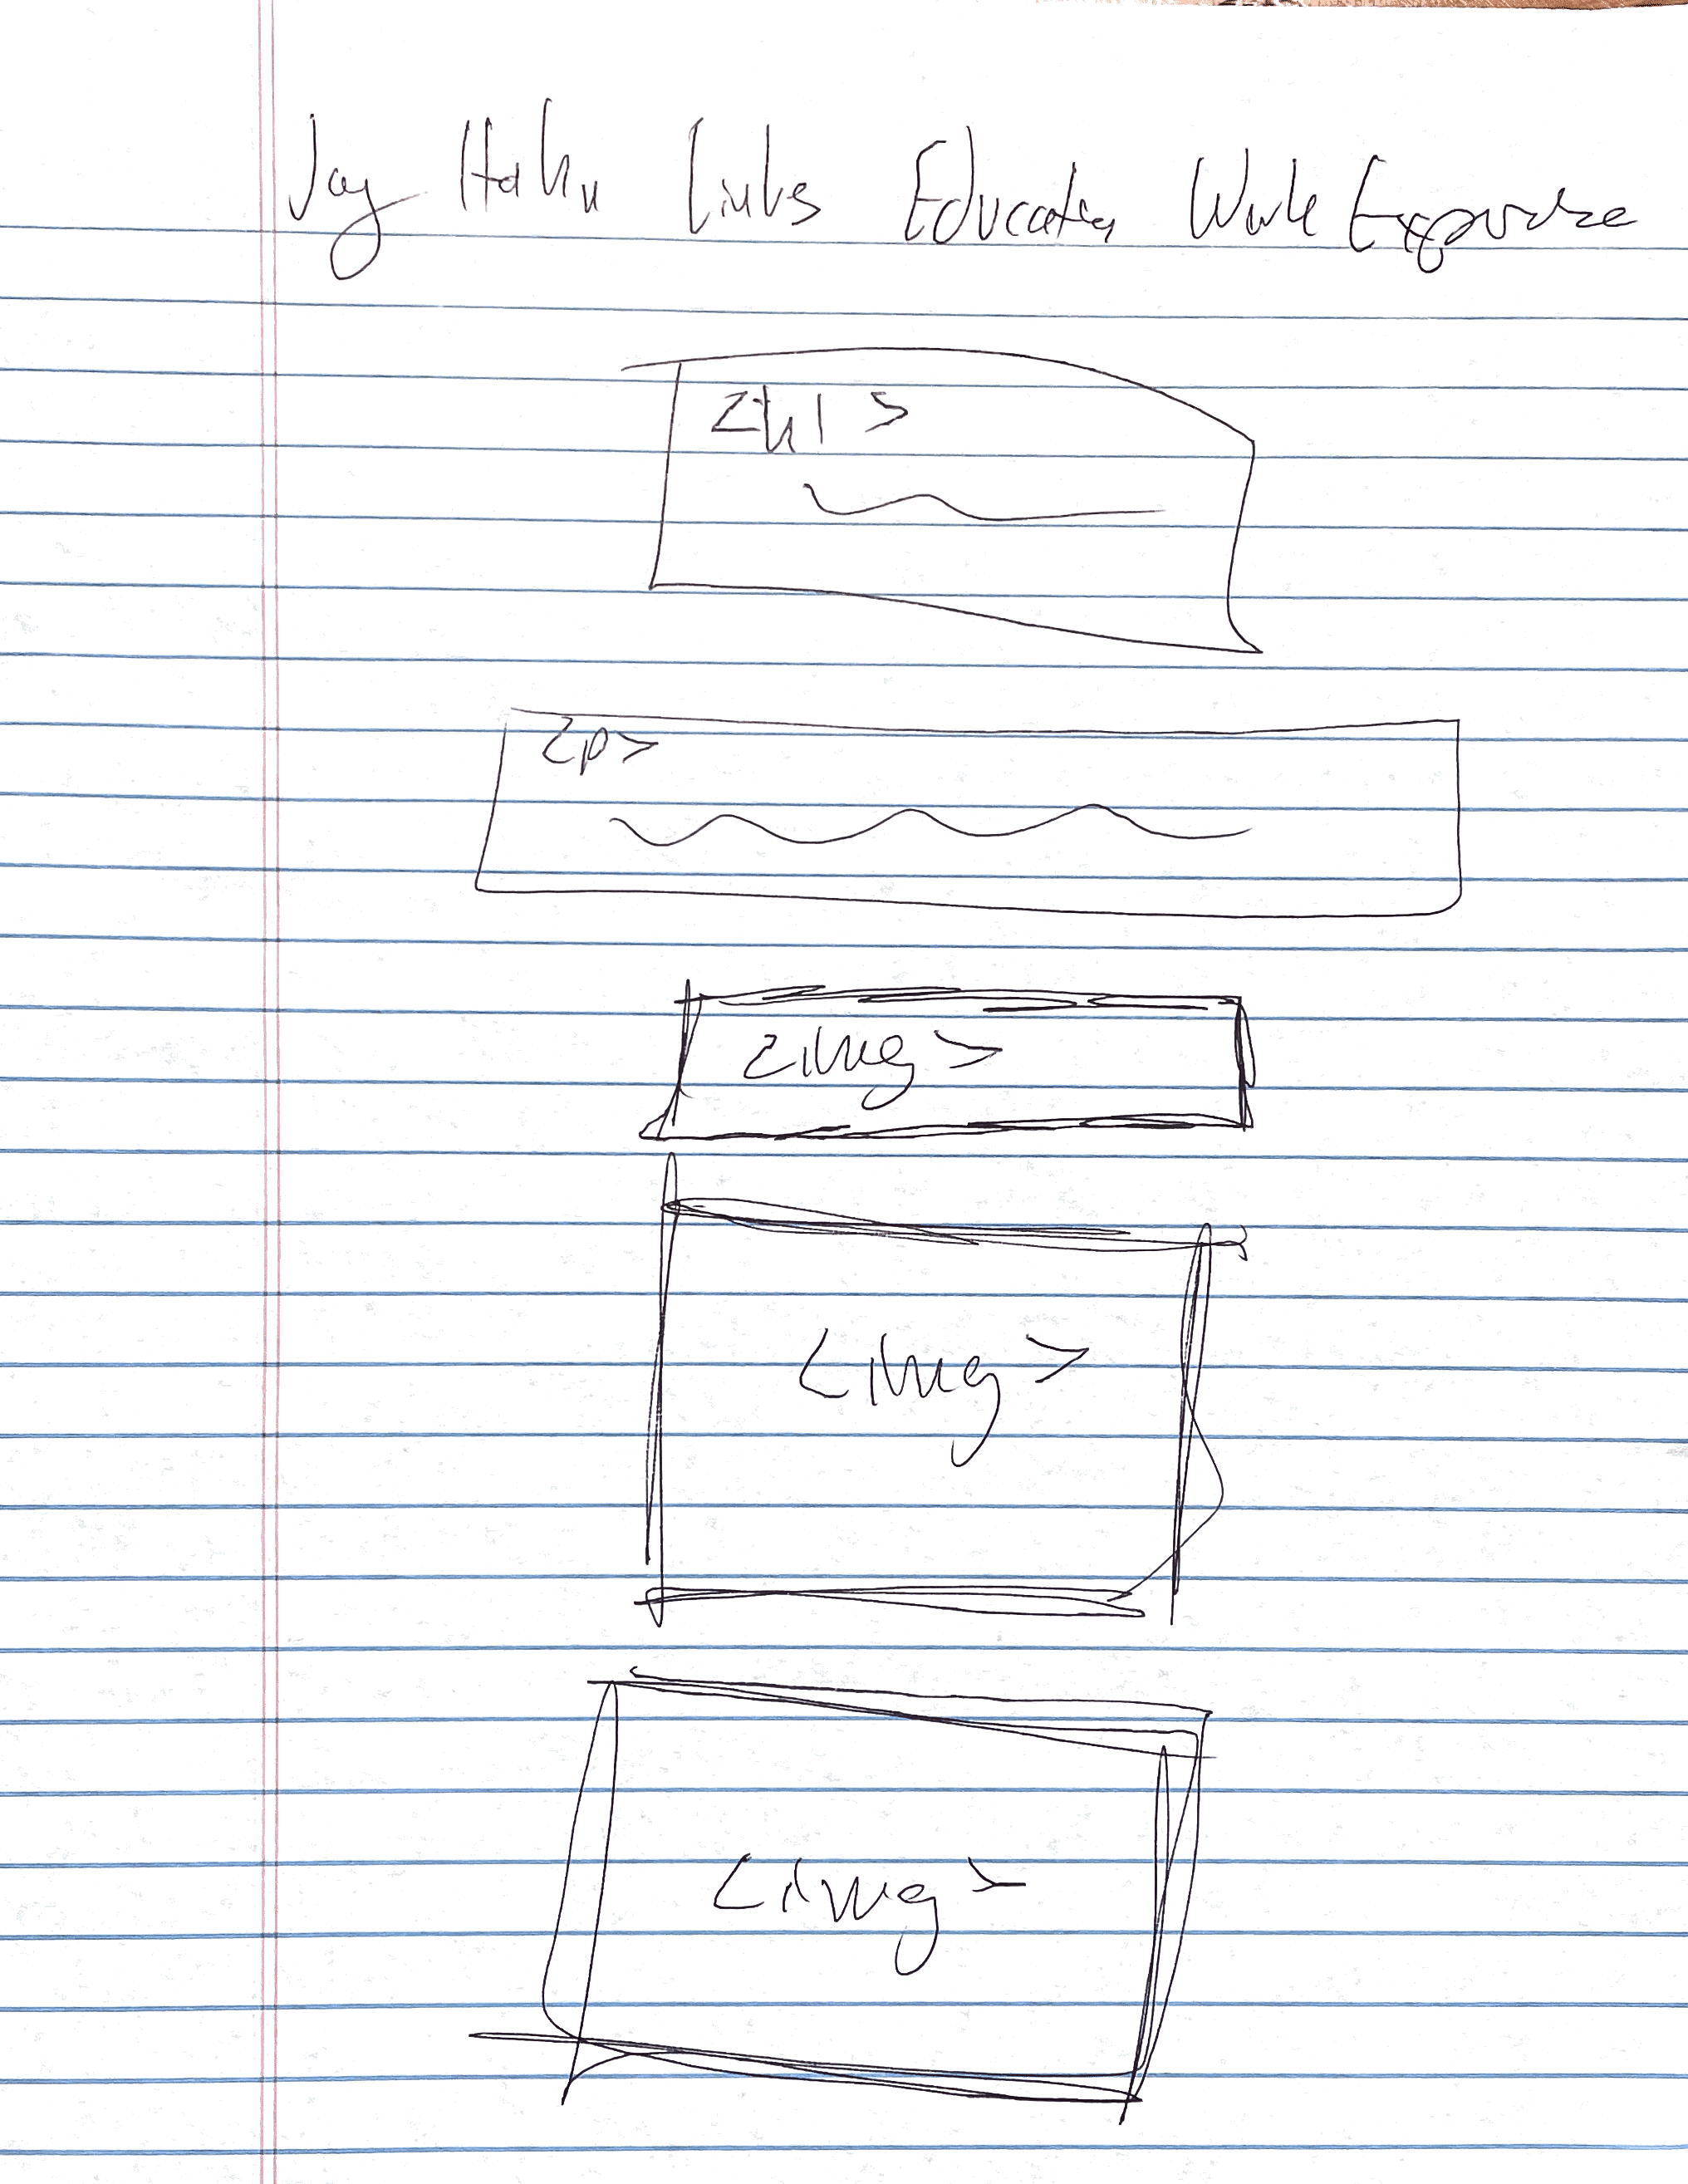 Jay Hahn Links Education Work Experience
<h1>
<p>
<img>
<img>
<img>